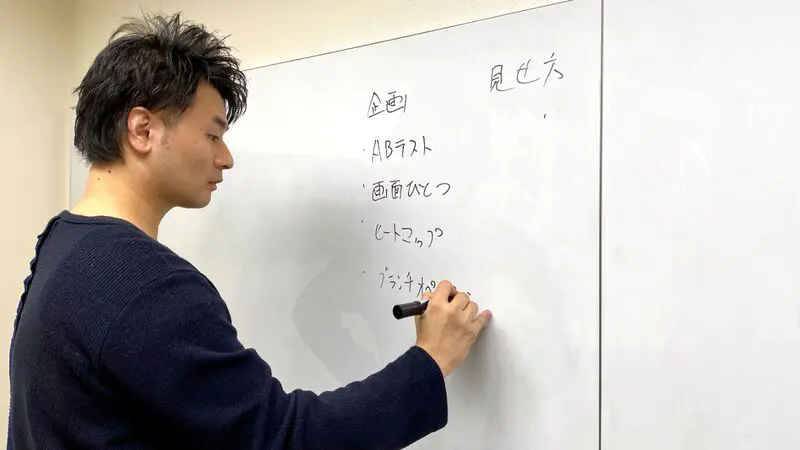 企画
・ABテスト
・画面ひとつ
・ヒートマップ
・ブランチオペ
見せ方
・